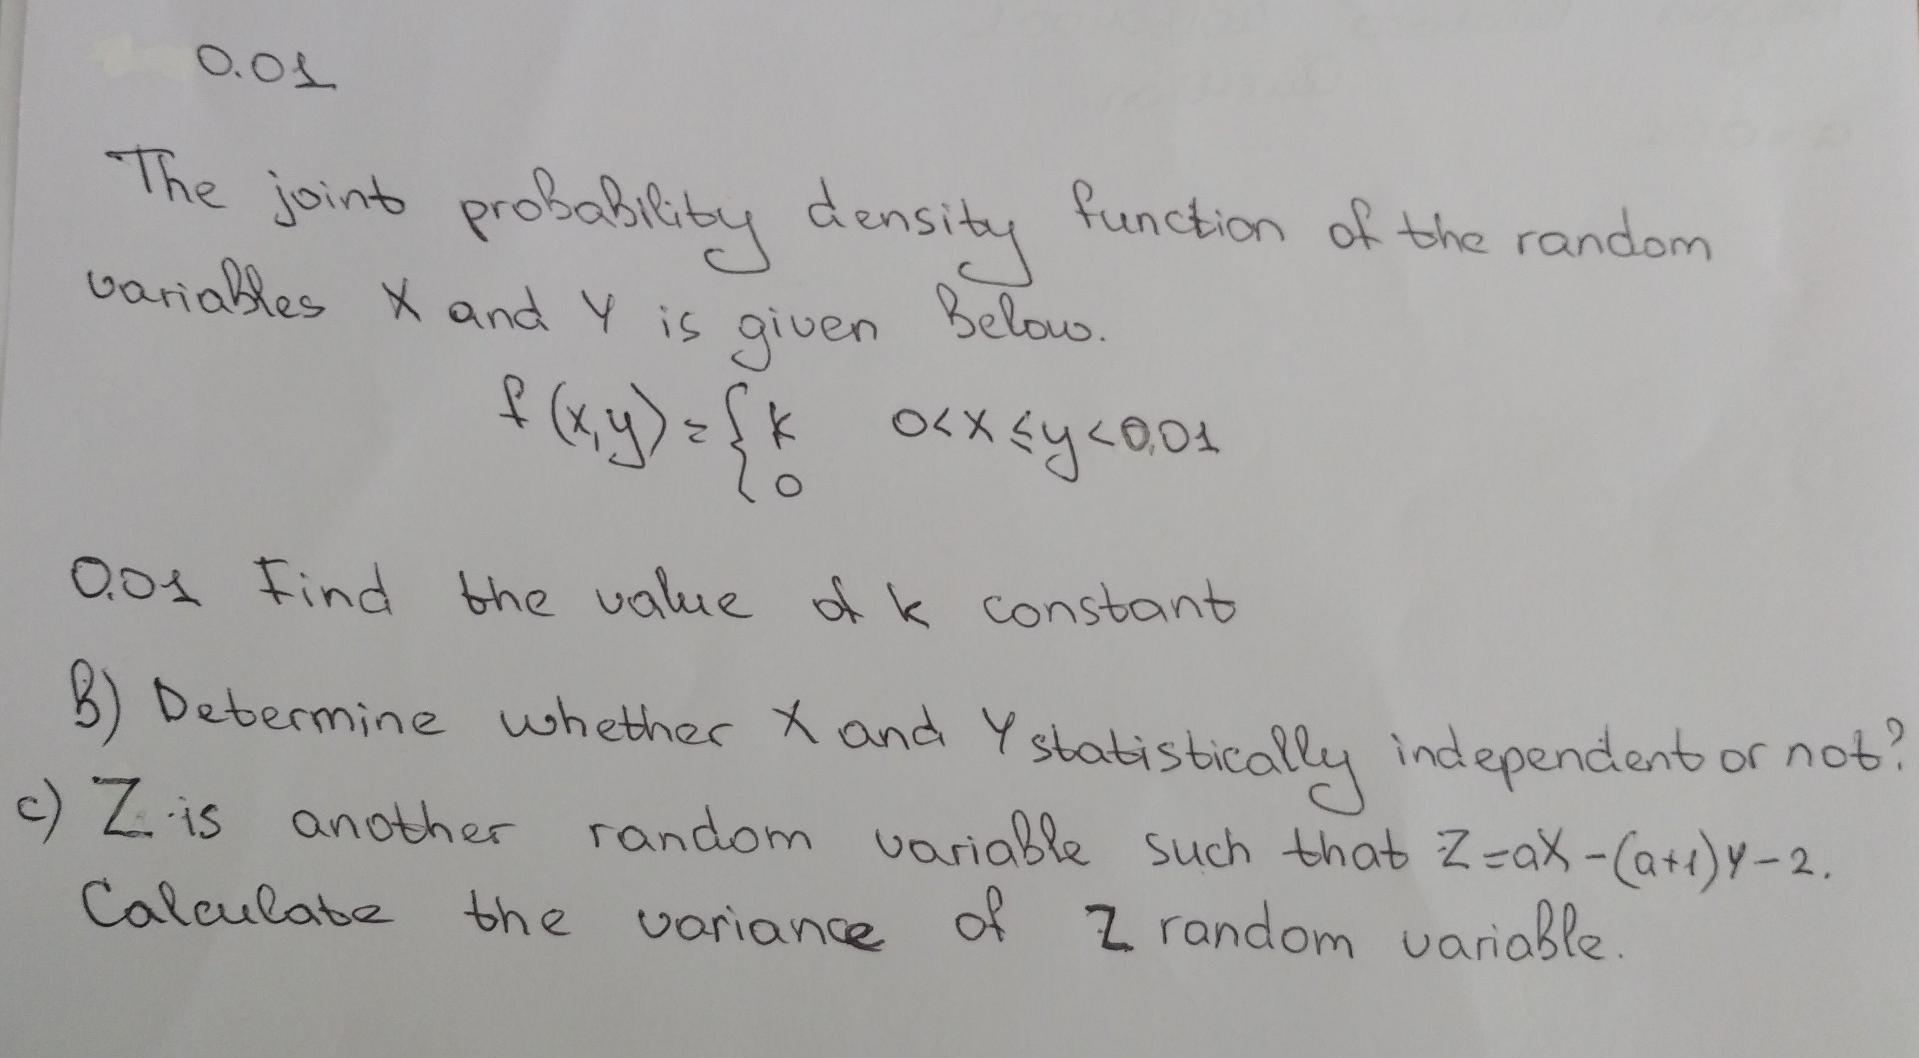 0.01
The joint probability density function of the random
variables X and Y is given below.
f(x,y)={k 0<x≤y<0,01
0
0.01 Find the value of k constant
B) Determine whether X and Y statistically independent or not?
c) Z is another random variable such that Z=aX-(a+1)Y-2.
Calculate the variance of Z random variable.